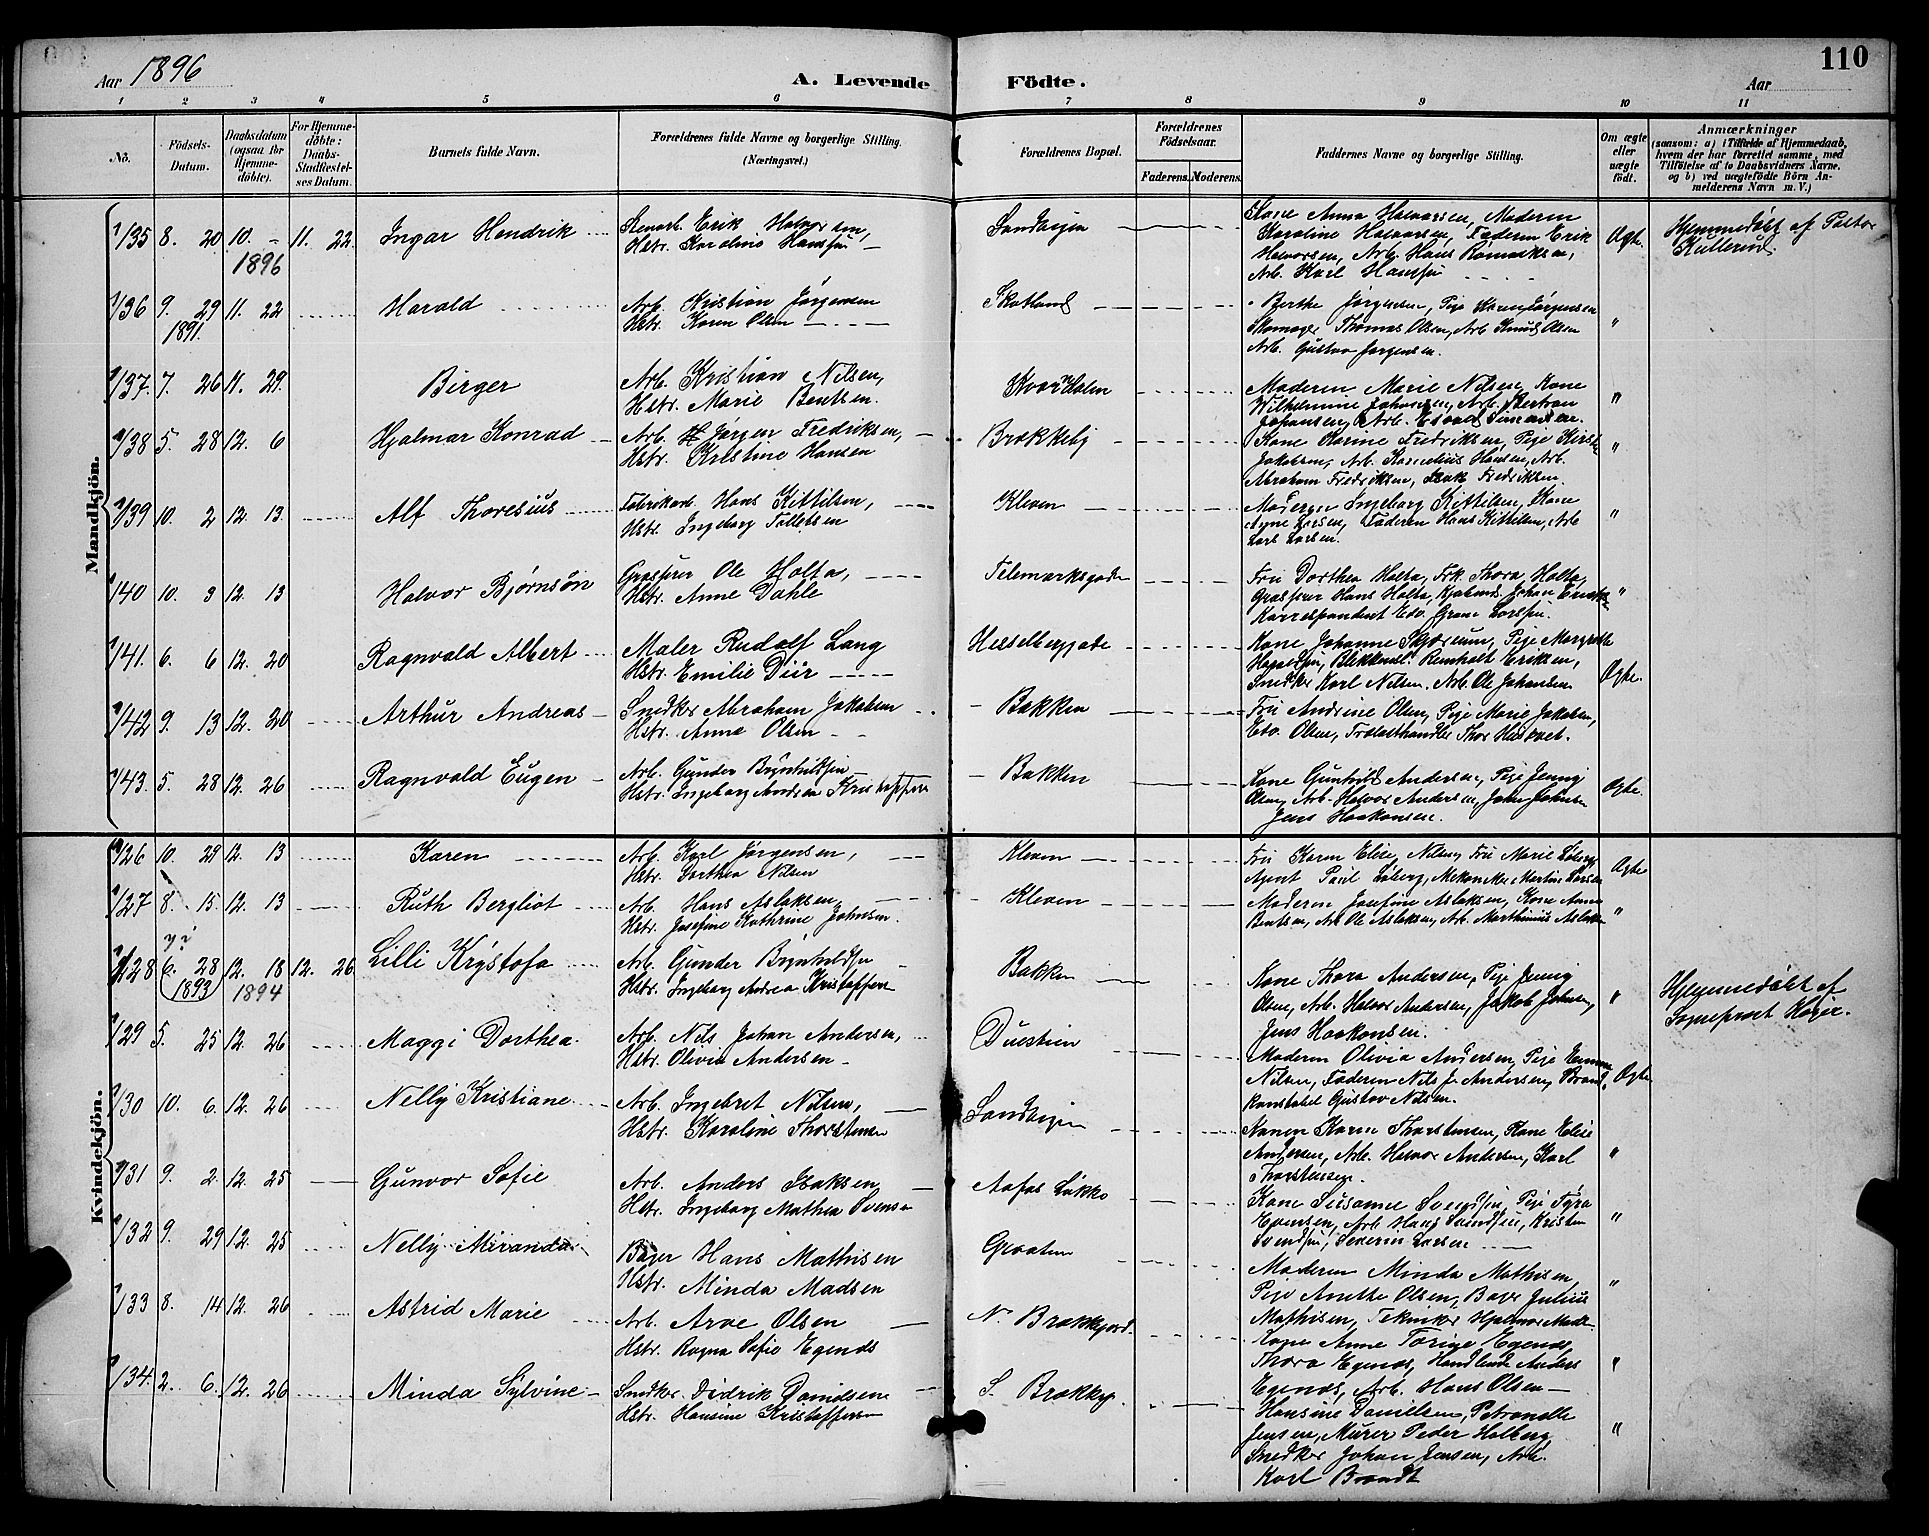 Aar 1896
A. Levende Födte.
Aar
110
1 2 3 4 5 6 7 8 9 10 11
No.
Födsels-Datum.
Daabsdatum (ogsaa for Hjemme-döbte).
For Hjemme-döbte: Daabs-Stadfæstel-ses Datum.
Barnets fulde Navn.
Forældrenes fulde Navne og borgerlige Stilling.
(Næringsvei.)
Forældrenes Bopæl.
Forældrenes Födselsaar.
Faderens. Moderens.
Faddernes Navne og borgerlige Stilling.
Om ægte eller uægte födt.
Anmærkninger
(saasom: a) i Tilfælde af Hjemmedaab,
hvem der har forrettet samme, med
Tilföielse af to Daabsvidners Navne,
og b) ved uægtefödte Börn An-
melderens Navn m. V.)
Mandkjön.
135 8. 20 10. - 11. 22 Ingar Hendrik Erik Halvorsen, Sandvigen Kone Anna Halvorsen, Moderen Ægte. Hjemmedøbt af Pastor
1896 Hstr. Karoline Hansen Karoline Halvorsen, Faderen Erik Kullerud.
Halvorsen, Arb. Hans
Arb. Karl Hansen
136 9. 29 11. 22 Harald Arb. Kristian Jørgensen Skotland Berthe Jørgensen, Pige Karen Jørgensen "
1891. Hstr. Karen Olsen Skomager Thomas Olsen, Arb. Knud Olsen
Arb. Gustav Jørgensen.
137. 7. 26 11. 29. Birger Arb. Kristian Nilsen, Kvar Holm Moderen Marie Nilsen, Kone "
Hstr. Marie Bentsen. Wilhelmine Johansen, Arb.
Johansen, Arb.
138 5. 28 12. 6 Hjalmar Konrad Arb. Jørgen Fredriksen, Brækkeby Kone Karine Fredriksen, Pige "
Hstr. Kristine Hansen Jakobsen, Arb. Kornelius Hansen, Arb.
Abraham Fredriksen, Isak Fredriksen.
139 10. 2 12. 13. Alf Thoresius Fabrikarb. Hans Kittilsen, Kleven Moderen Ingeborg Kittilsen, Kone "
Hstr. Ingeborg Tollefsen Larsen, Faderen Hans Kittilsen, Arb.
Lars Larsen.
140 10. 3 12. 13 Halvor Bjørnsøn Ole Holta, Telemarksgaden Fru Dorthea Holta, Frk. Thora Holta, "
Hstr. Anne Dahle Hans Holta, Johan
Korrespondent Edv. Larsen.
141. 6. 6 12. 20 Ragnvald Albert Maler Rudolf Lang Hesselbergade Kone Johanne Pige Margrethe Ægte.
Hstr. Emilie Reinholt Eriksen,
Snedker Karl Nilsen. Arb. Ole Johansen
142 9. 13 12. 20 Arthur Andreas Snedker Abraham Jakobsen Bakken Fru Andrine Olsen, Pige Marie Jakobsen,
Hstr. Anna Olsen Edv. Olsen, Trælasthandler Thor
143. 5. 28 12. 26 Ragnvald Eugen Arb. Gunder Brynhildsen Bakken Kone Gunhild Andersen, Pige Jenny Ægte.
Hstr. Ingeborg Andrea Kristoffersen Olsen, Arb. Halvor Andersen, John Johnsen
Jens Haakonsen.
Kvindekjön.
126 10. 29 12. 13 Karen Arb. Karl Jørgensen, Kleven Fru Karen Elise Nilsen, Fru Marie Ægte
Hstr. Dorthea Nilsen Agent Paul Mekaniker Martin Larsen
127 8. 15. 12. 13 Ruth Bergliot Arb. Hans Aslaksen, Kleven Moderen Josefine Aslaksen, Kone Anne "
Hstr. Josefine Kathrine Johnsen. Bentsen, Arb. Ole Aslaksen, Arb. Marthinius Aslaksen
128 6. 28 12. 18 12. 26. Lilli Krystofa Arb. Gunder Brynhildsen Bakken Kone Thora Andersen, Pige Jenny " Hjemmedøbt af
1893 1894 Hstr. Ingeborg Andrea Kristoffersen Olsen, Arb. Halvor Andersen, Jakob Johnsen, Sogneprest Høyer.
Jens Haakonsen.
129 5. 25 12. 26 Maggi Dorthea Arb. Nils Johan Andersen, Duestien Moderen Olivia Andersen, Pige Emma Ægte
Hstr. Olivia Andersen Nilsen, Faderen Nils J. Andersen, Brand-
konstabel Gustav Nilsen.
130 10. 6. 12. 26 Nelly Kristiane Arb. Ingebret Nilsen, Sandvigen Konen Karen Thorstensen, Kone Elise "
Hstr. Karoline Thorstensen Andersen, Arb. Halvor Andersen, Karl
Thorstensen.
131 9. 2. 12. 25 Gunvor Sofie Arb. Anders Isaksen Aafos Løkke Kone Susanne Svendsen, Pige Tyra "
Hstr. Ingeborg Mathea Svensen Evensen, Arb. Hans Svendsen, Kristen
Svendsen, Severin Larsen
132 9. 29 12. 25 Nelly Miranda Bager Hans Mathisen Graaten Moderen Minda Mathisen, "
Hstr. Minda Madsen Pige Anethe Olsen, Bager Julius
Mathisen, Tekniker Hjalmar
133 8. 14 12. 26 Astrid Marie Arb. Arve Olsen N. Brækkejord. Kone Anne Torine Egenes, "
Hstr. Ragna Sofie Egenes Thora Egenes, Handlende Anders
Egenes, Arb. Hans Olsen
134. 2. 6. 12. 26 Minda Sylvine Snedker Didrik Danielsen S. Brækkej. Hansine Danielsen, Petronelle "
Hstr. Hansine Kristoffersen Jensen, Murer Peder Holberg,
Snedker Johan Jensen, Arb.
Karl Brandt